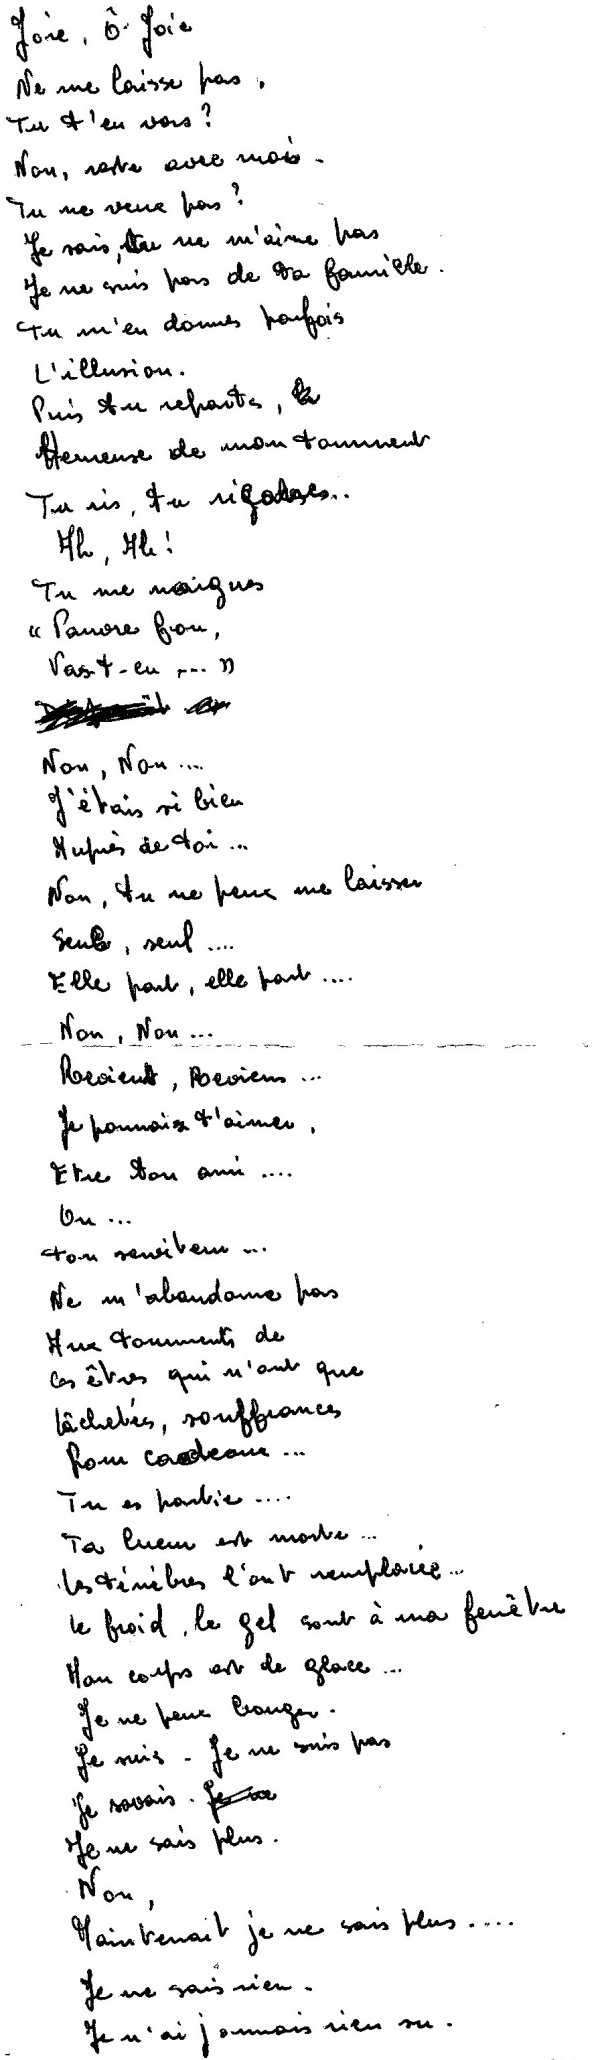 Joie, ô Joie
Ne me laisse pas,
Tu t'en vas?
Non, reste avec moi.
Tu ne veux pas?
Je sais, tu ne m'aime pas
Je ne suis pas de ta famille.
Tu m'en donnes parfois
L'illusion.
Puis tu repartes,
Heureuse de mon tourment
Tu ris, tu rigoles..
Ah, Ah!
Tu me nargues
« Pauvre fou,
Vas-t-en ... »
Non, Non ...
J'étais si bien
Auprès de toi ...
Non, tu ne peux me laisser
Seul, seul ....
Elle part, elle part ....
Non, Non ...
Revient, Reviens ...
Je pourrais t'aimer,
Etre ton ami ....
Ou ...
ton serviteur ...
Ne m'abandonne pas
Aux tourments de
ces êtres qui n'ont que
lâchetés, souffrances
Pour cadeaux ...
Tu es partie ....
Ta lueur est morte ...
Les ténèbres l'ont remplacée ...
le froid, le gel sont à ma fenêtre
Mon corps est de glace ...
Je ne peux bouger.
Je suis. Je ne suis pas
Je savais. Je ne
Je ne sais plus.
Non,
Maintenait je ne sais plus ....
Je ne sais rien.
Je n'ai jamais rien su.